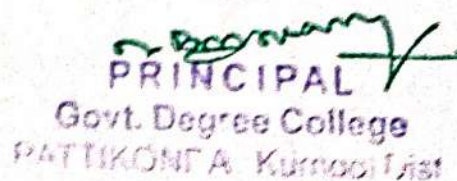 PRINCIPAL
Govt. Degree College
PATTIKONDA Kurnool Dist